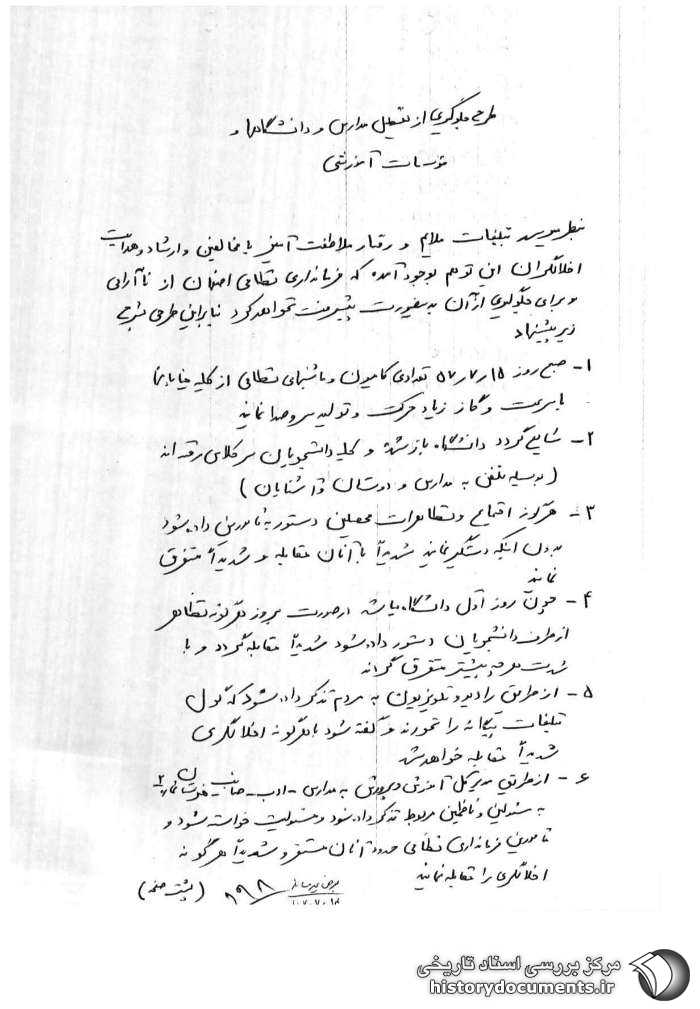 طرحی جلوگیری از تعطیل مدارس و دانشگاهها و
موسسات آموزشی
بنظر میرسد تبلیغات ملایم و رفتار ملاطفت آمیز با مخالفین و ارشاد و هدایت
اخلالگران این توهم بوجود آمده که فرمانداری نظامی اصفهان از ناآرامی
و برای جلوگیری از آن به صورت خواهد کرد بنابراین طرحی بشرح
زیر پیشنهاد
۱- صبح روز ۱۵ر۷ر۵۷ تعدادی کامیون و تانکهای نظامی از کلیه خیابانها
با سرعت و گاز زیاد حرکت و تولید سر و صدا نمایند
۲- شایع گردد دانشگاه باز شده و کلیه دانشجویان سر کلاس رفته اند
(بوسیله تلفن به مدارس و دوستان و آشنایان)
۳- هرگونه اجتماع و تظاهرات محصلین دستور به مامورین داده شود
بدون اینکه دستگیر نمایند شدیداً با آنان مقابله و شدیداً متفرق
نمایند
۴- چون روز اول دانشگاه میباشد در صورت بروز هرگونه تظاهر
از طرف دانشجویان دستور داده شود شدیداً مقابله گردد و با
شدت هر چه بیشتر متفرق گردند
۵- از طریق رادیو و تلویزیون به مردم تذکر داده شود که گول
تبلیغات بیگانه را نخورند و گفته شود با هرگونه اخلالگری
شدیداً مقابله خواهد شد
۶- از طریق مدیر کل آموزش و پرورش به مدارس - ادب - صائب -
به مسئولین و ناظمین مربوط تذکر داده شود و مسئولیت خواسته شود و
مامورین فرمانداری نظامی حدود آنان مستقر و شدیداً هرگونه
اخلالگری را مقابله نمایند
(پشت صفحه)
مرکز بررسی اسناد تاریخی
historydocuments.ir